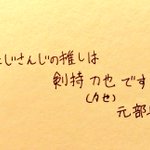 にじさんじの推しは
剣持刀也です
(カセ)
元部